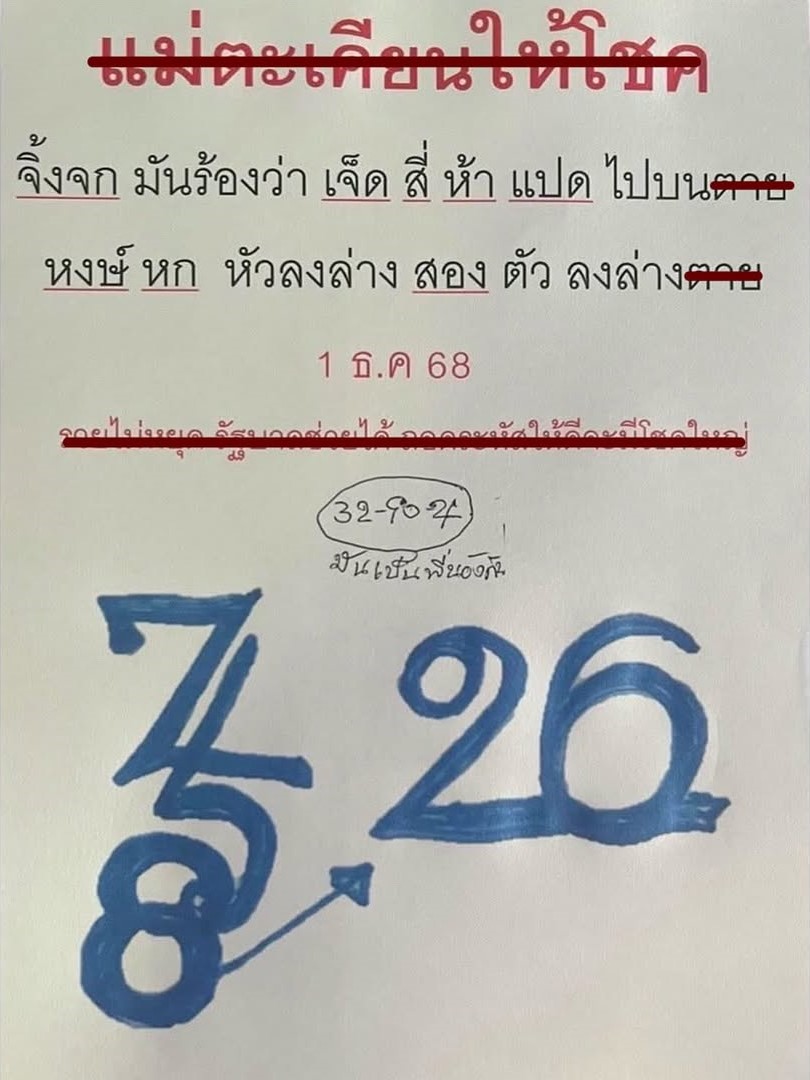 แม่ตะเคียนให้โชค
จิ้งจก มันร้องว่า เจ็ด สี่ ห้า แปด ไปบนตาย
หงษ์ หก หัวลงล่าง สอง ตัว ลงล่างตาย
1 ธ.ค 68
รวยไม่หยุด รัฐบาลช่วยได้ ถอดรหัสให้ดีจะมีโชคใหญ่
32-90
มันเป็นพี่น้องกัน
7 4 26
5
8